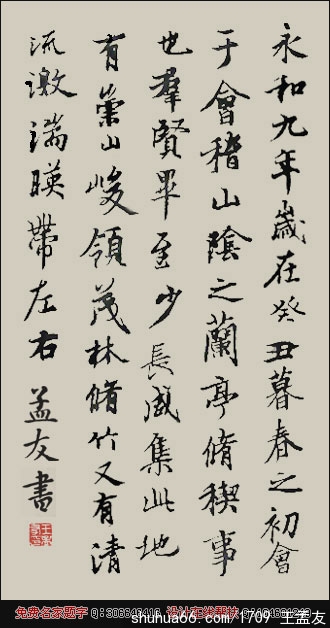 永和九年歲在癸丑暮春之初會
于會稽山陰之蘭亭脩稧事
也羣賢畢至少長咸集此地
有崇山峻領茂林脩竹又有清
流激湍暎帶左右孟友書
免费名家题字
shuhua66.com/1709 王孟友